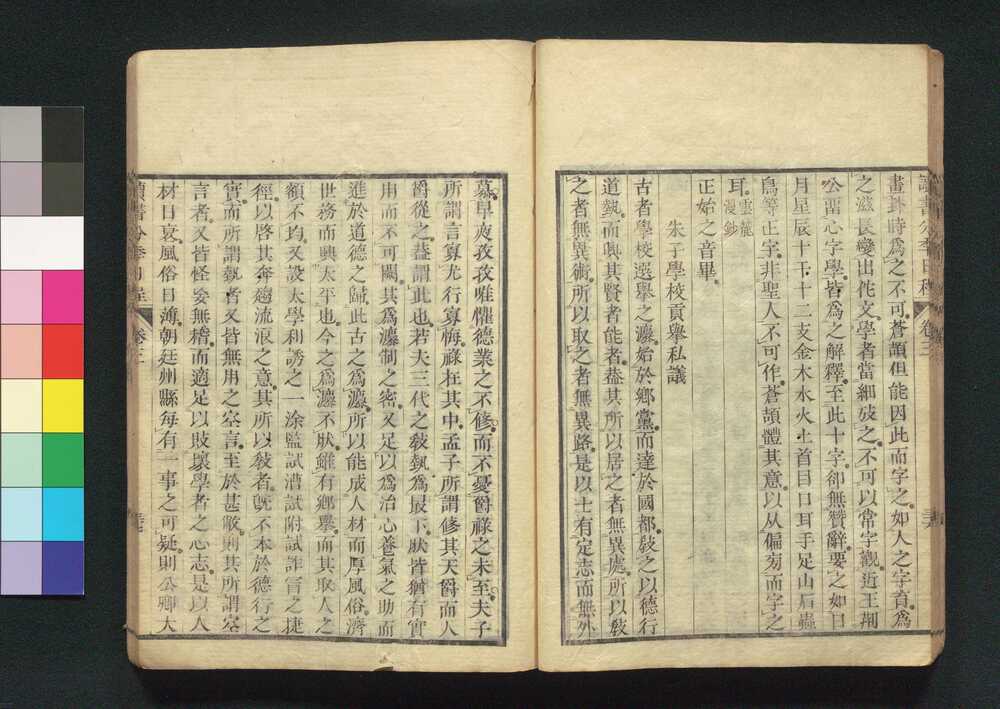 讀書分年日程 卷三
畫卦時爲之不可蒼頡但能因此而字之如人之字首爲
之滋長變出佗文學者當細攷之不可以常字觀近王荆
公畱心字學皆爲之解釋至此十字卻無贊辭要之如日
月星辰十干十二支金木水火土首目口耳手足山石蟲
鳥等正字非聖人不可作蒼頡體其意以从偏㫄而字之
耳雲麓漫鈔
正始之音畢
朱子學校貢舉私議
古者學校選舉之灋始於鄉黨而達於國都敎之以德行
道蓺而興其賢者能者葢其所以居之者無異處所以敎
之者無異術所以取之者無異路是以士有定志而無外
慕早夜孜孜唯懼德業之不修而不憂爵祿之未至夫子
所謂言寡尤行寡悔祿在其中孟子所謂修其天爵而人
爵從之葢謂此也若夫三代之敎蓺爲最下肰皆猶有實
用而不可闕其爲灋制之密又足以爲治心養气之助而
進於道德之歸此古之爲灋所以能成人材而厚風俗濟
世務而興太平也今之爲灋不肰雖有鄉舉而其取人之
額不均又設太學利誘之一涂監試漕試附試詐冒之捷
徑以啓其奔趨流浪之意其所以敎者旣不本於德行之
實而所謂蓺者又皆無用之空言至於甚敝則其所謂空
言者又皆怪妄無稽而適足以敗壞學者之心志是以人
材日衰風俗日薄朝廷州縣每有一事之可疑則公卿大
讀書分年日程 卷三